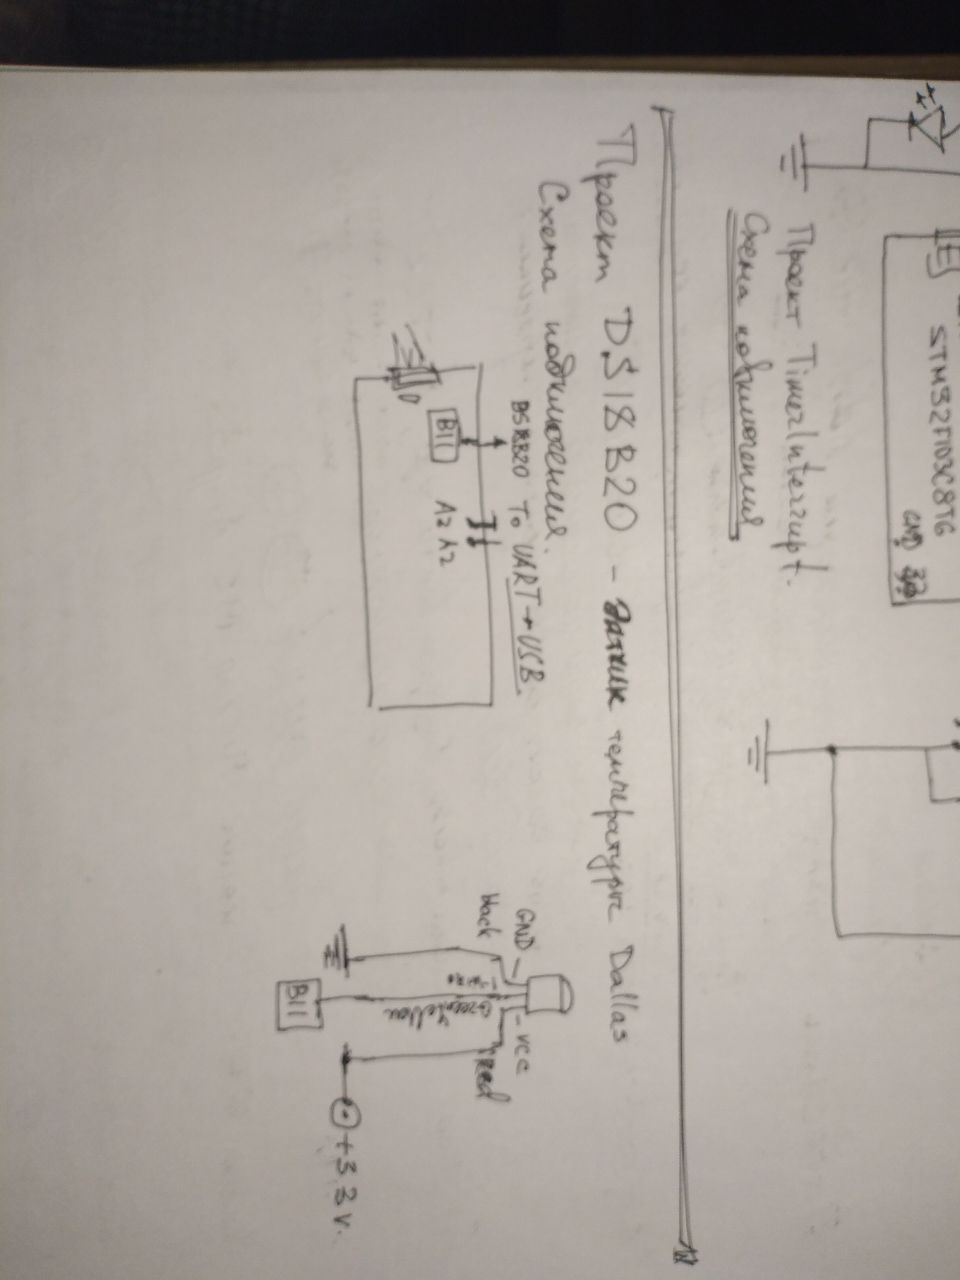 STM32F103C8T6
GND 3,3
Проект TimerInterrupt.
Схема подключения
Проект DS18B20 - Датчик температуры Dallas
Схема подключения.
DS18B20 To UART→USB.
B11
A2 A2
GND
VCC
black
Red
Green
yellow
B11
+3.3 v.